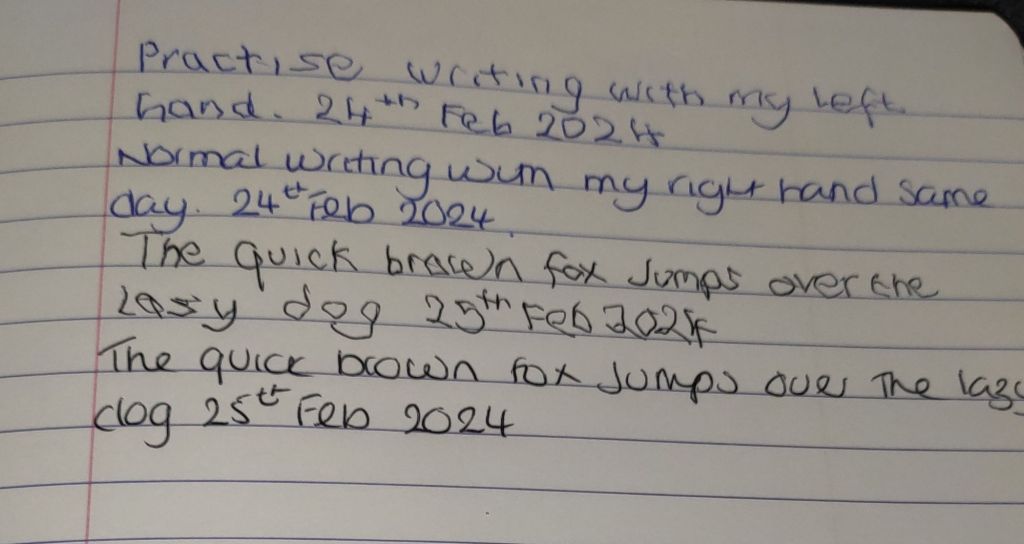 Practise writing with my left
hand. 24th Feb 2024
Normal writing with my right hand same
day. 24th Feb 2024.
The quick brown fox Jumps over the
Lasy dog 25th Feb 2024
The quick brown fox Jumps over The lazy
dog 25th Feb 2024